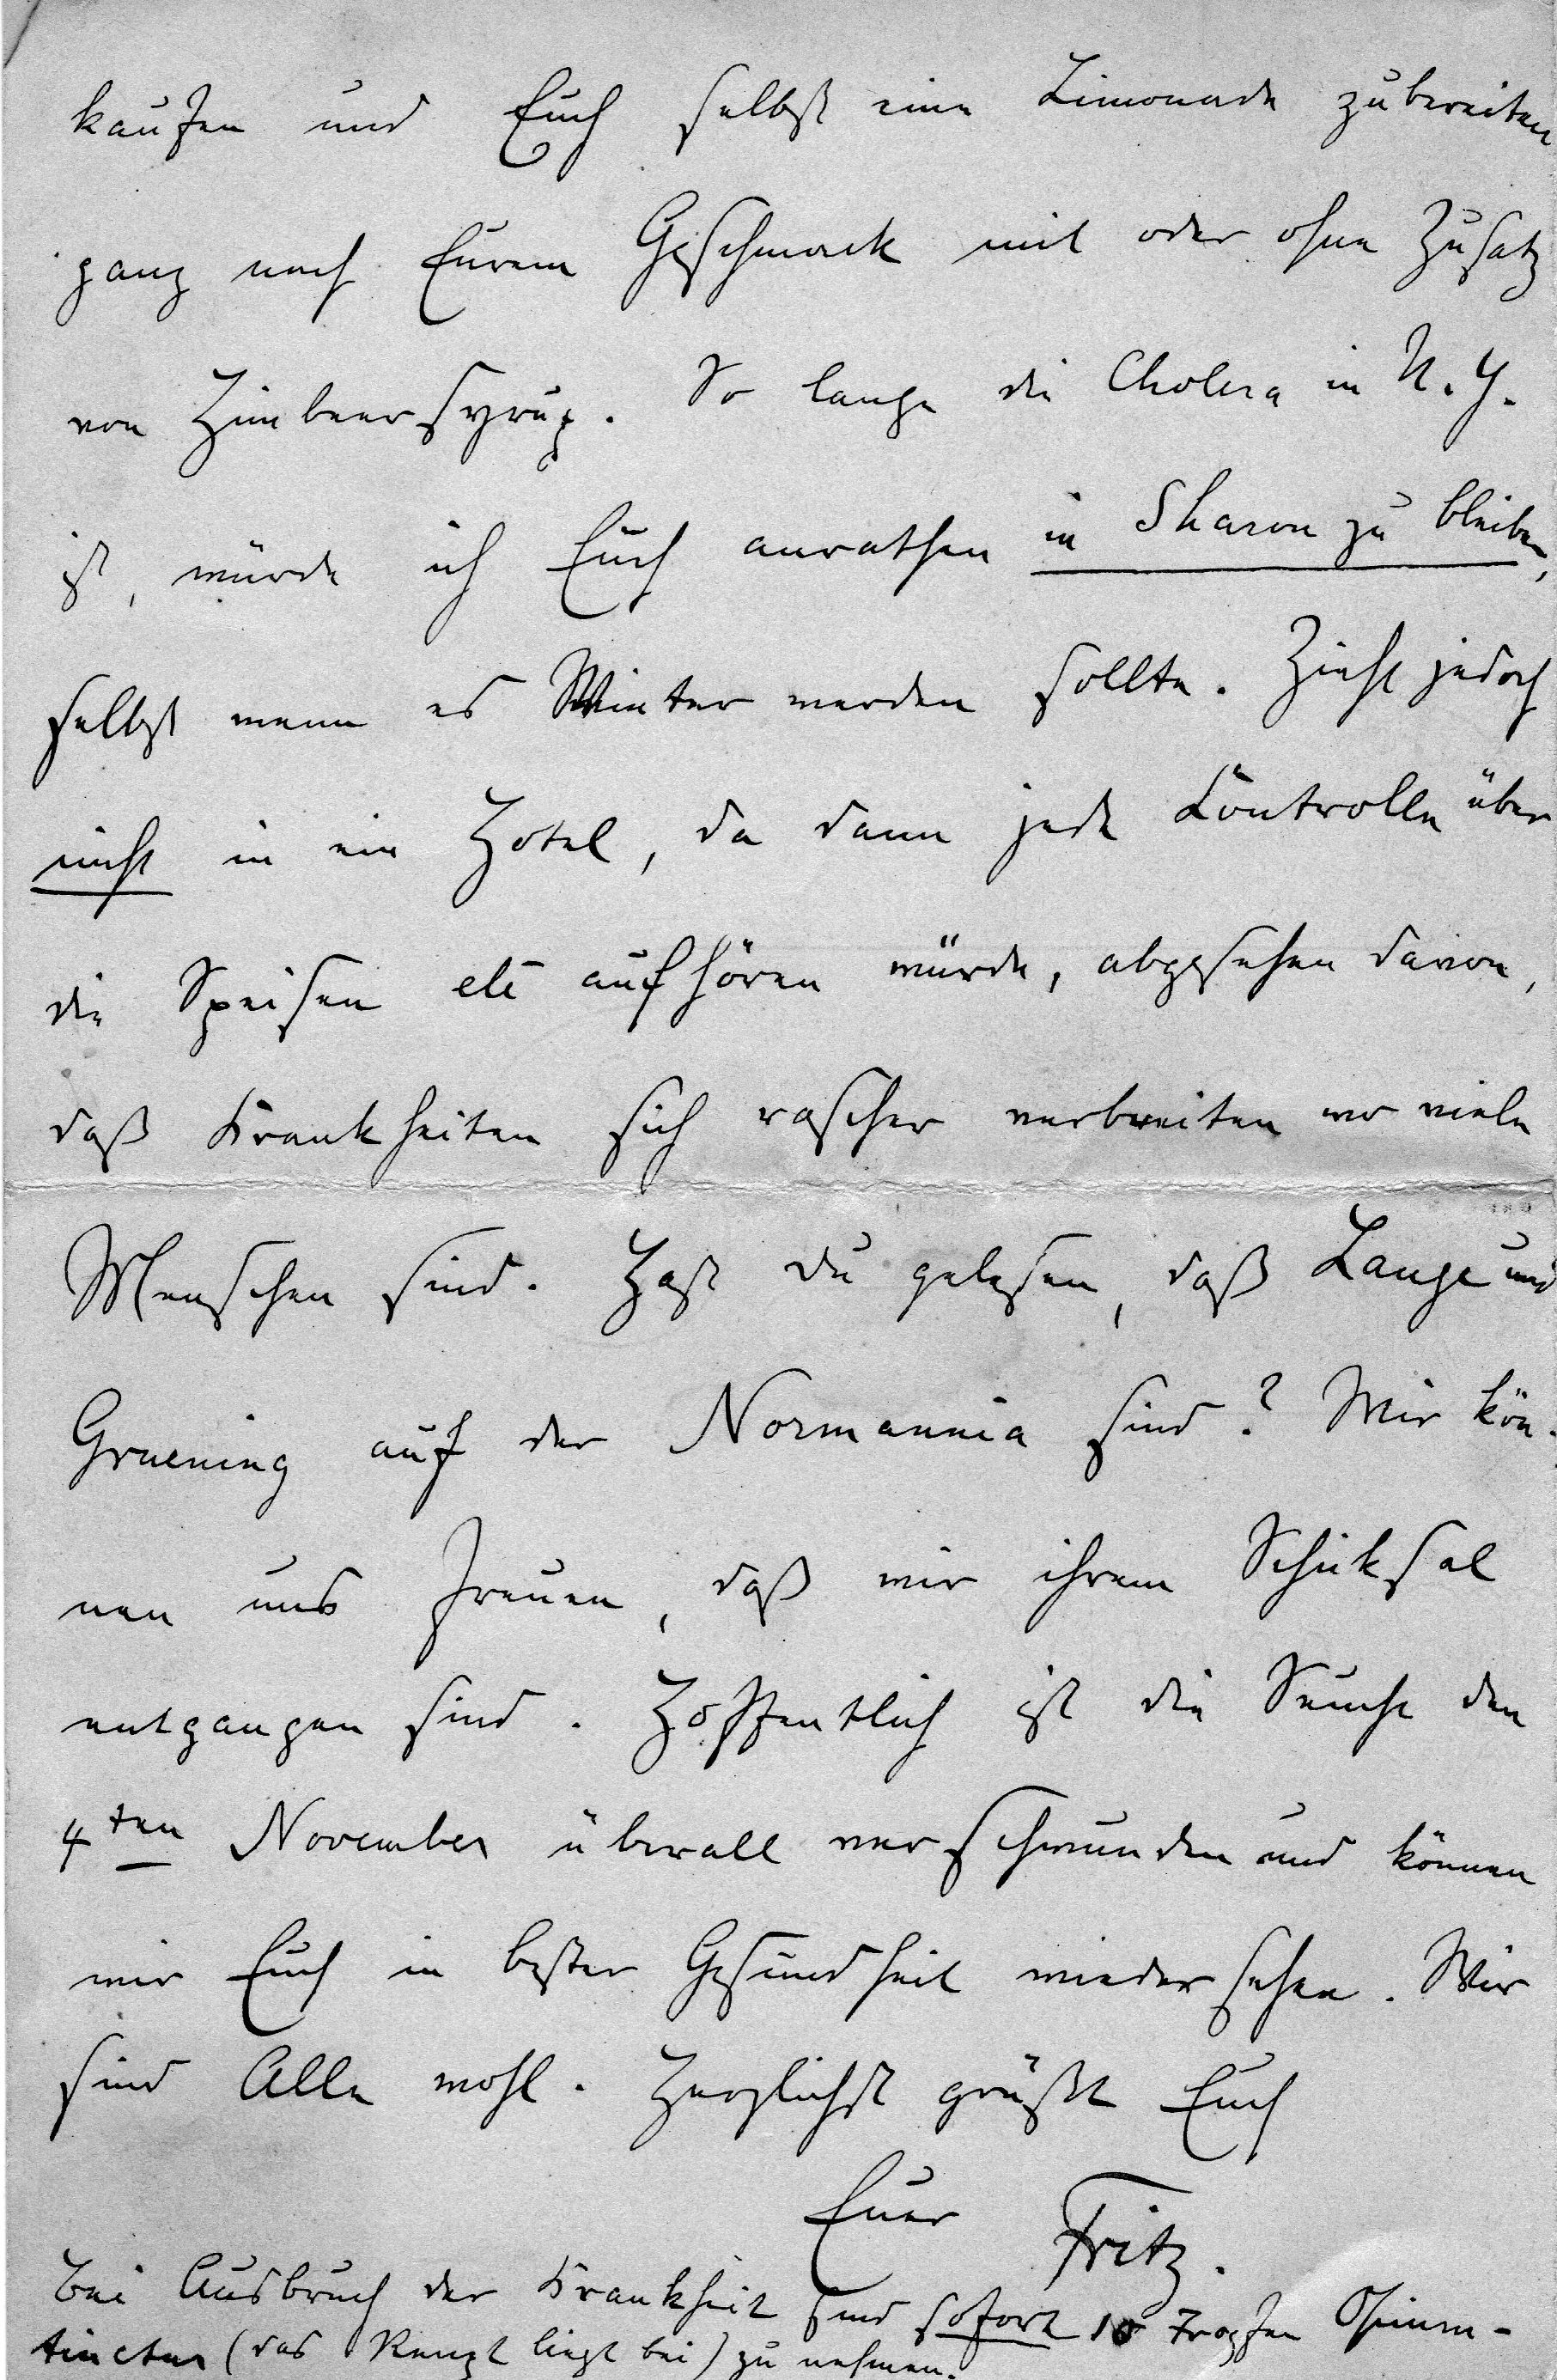 kaufen und Euch selbst eine Limonade zubereiten
ganz nach Eurem Geschmack mit oder ohne Zusatz
von Himbeersyrup. So lange die Cholera in N. Y.
ist, würde ich Euch anrathen in Sharon zu bleiben,
selbst wenn es Winter werden sollte. Zieht jedoch
nicht in ein Hotel, da dann jede Controlle über
die Speisen etc aufhören würde, abgesehen davon,
daß Krankheiten sich rascher verbreiten wo viele
Menschen sind. Hast du gelesen, daß Lange und
Gruening auf der Normannia sind? Wir kön-
nen uns freuen, daß wir ihrem Schicksal
entgangen sind. Hoffentlich ist die Seuche den
4ten November überall verschwunden und können
wir Euch in bester Gesundheit wiedersehen. Wir
sind Alle wohl. Herzlichst grüßt Euch
Euer Fritz.
Bei Ausbruch der Krankheit sind sofort 10 Tropfen Opium-
tinctur (das Rezept liegt bei) zu nehmen.